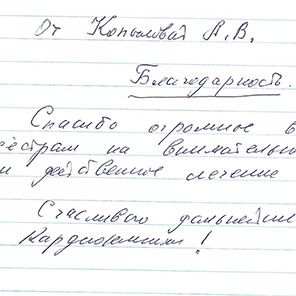 От Копыловай А.В.
Благодарность.
Спасибо огромное в
сёстрам на внимательно
и действенное лечение
Счасливого дальнейше
Кардиоклиники!